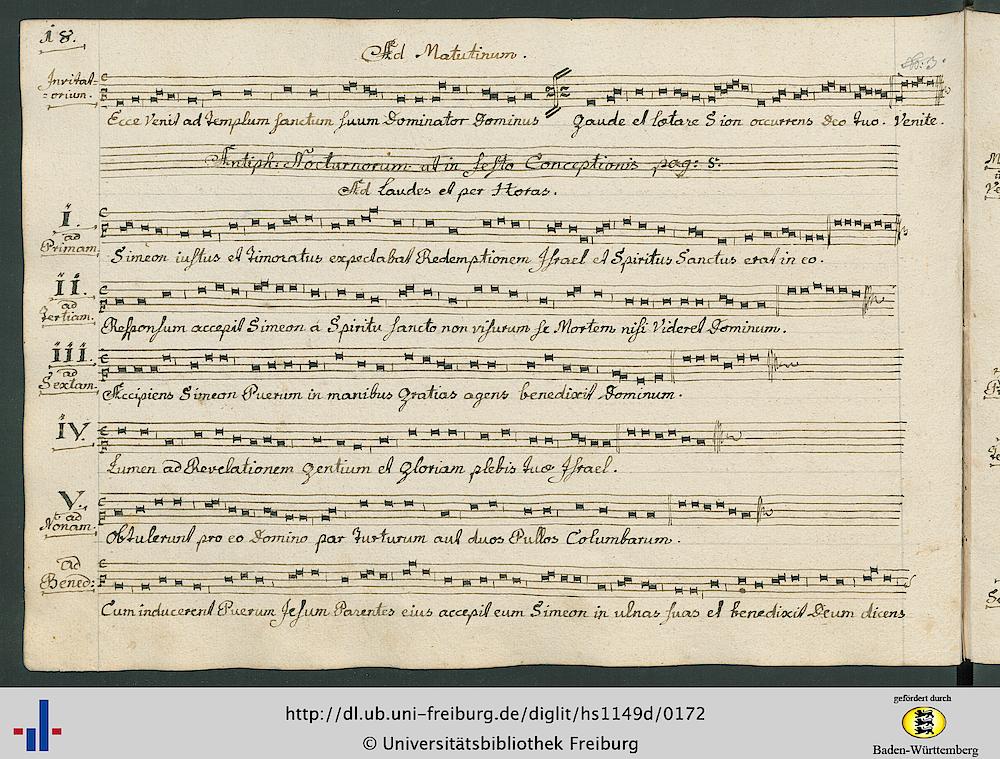 18.
Ad Matutinum.
Invitat-
orium.
Ecce Venit ad templum sanctum suum Dominator Dominus Gaude et lætare Sion occurrens Deo tuo. Venite.
Antiph: Nocturnorum ut in festo Conceptionis pag: 5.
Ad Laudes et per Horas.
I.
ad
Primam.
Simeon iustus et timoratus expectabat Redemptionem Israel et Spiritus Sanctus erat in eo.
II.
ad
Tertiam.
Responsum accepit Simeon á Spiritu sancto non visurum se Mortem nisi Videret Dominum.
III.
ad
Sextam.
Accipiens Simeon Puerum in manibus gratias agens benedixit Dominum.
IV.
Lumen ad Revelationem gentium et gloriam plebis tuæ Israel.
V.
ad
Nonam.
Obtulerunt pro eo Domino par turturum aut duos Pullos Columbarum.
ad
Bened:
Cum inducerent Puerum Jesum Parentes eius accepit eum Simeon in ulnas suas et benedixit Deum dicens
http://dl.ub.uni-freiburg.de/diglit/hs1149d/0172
© Universitätsbibliothek Freiburg
gefördert durch
Baden-Württemberg